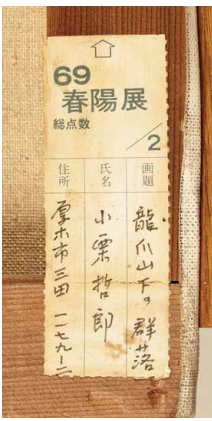 69
春陽展
総点数
/2
画題
龍爪山下の群落
氏名
小栗哲郎
住所
厚木市三田一一七九ー二